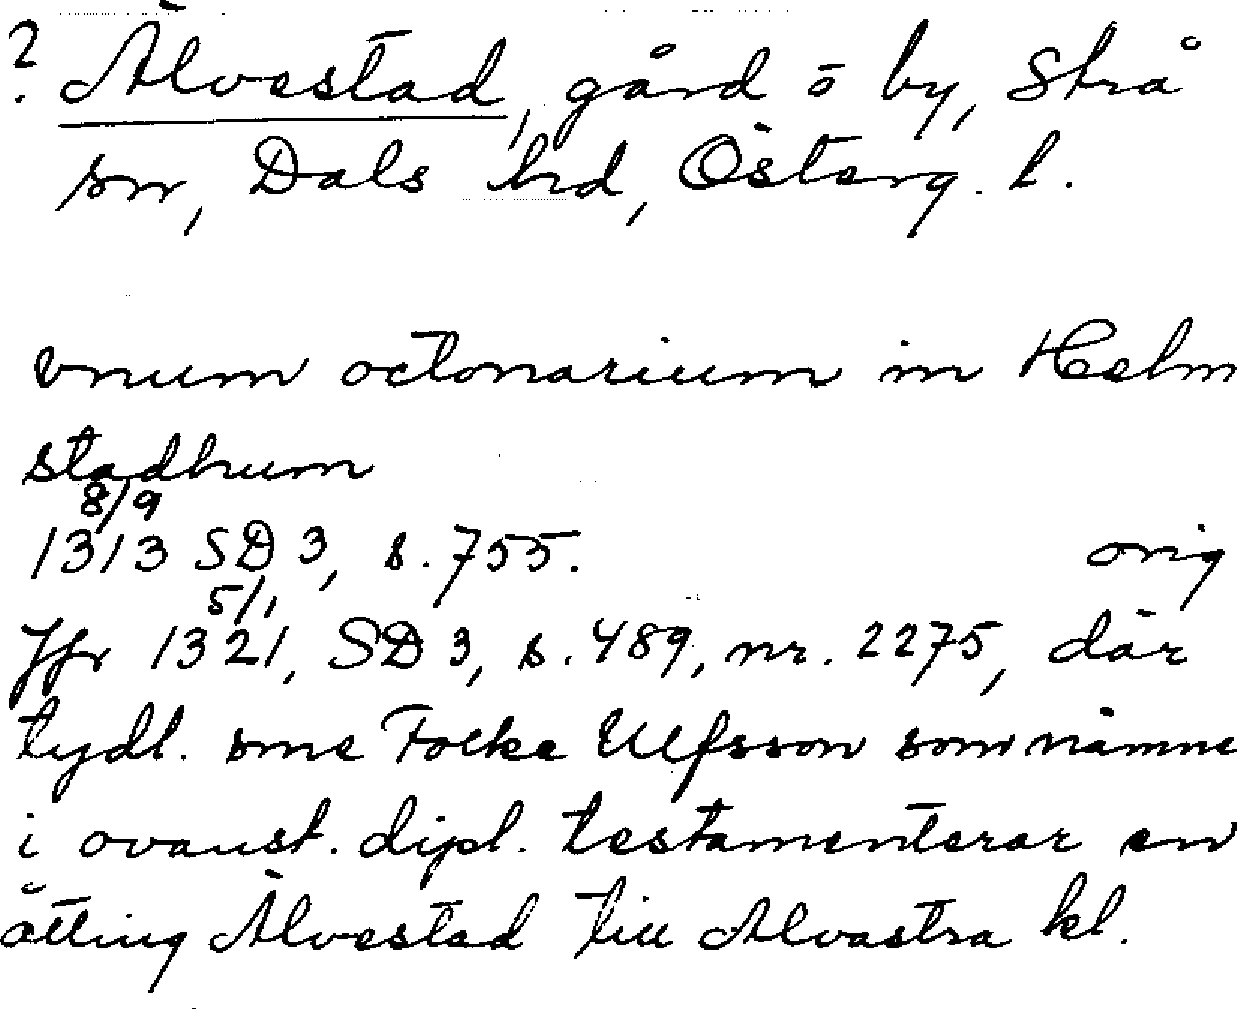 ? Älvestad, gård o by, Strå
sn, Dals hd, Österg. l.
vnum octonarium in Helm
stadhum
8/9
1313 SD 3, s. 755. orig
5/1
Jfr 1321, SD 3, s. 489, nr. 2275, där
tydl. sme Folke Ulfsson som nämne
i ovanst. dipl. testamenterar en
åtting Älvestad till Alvastra kl.